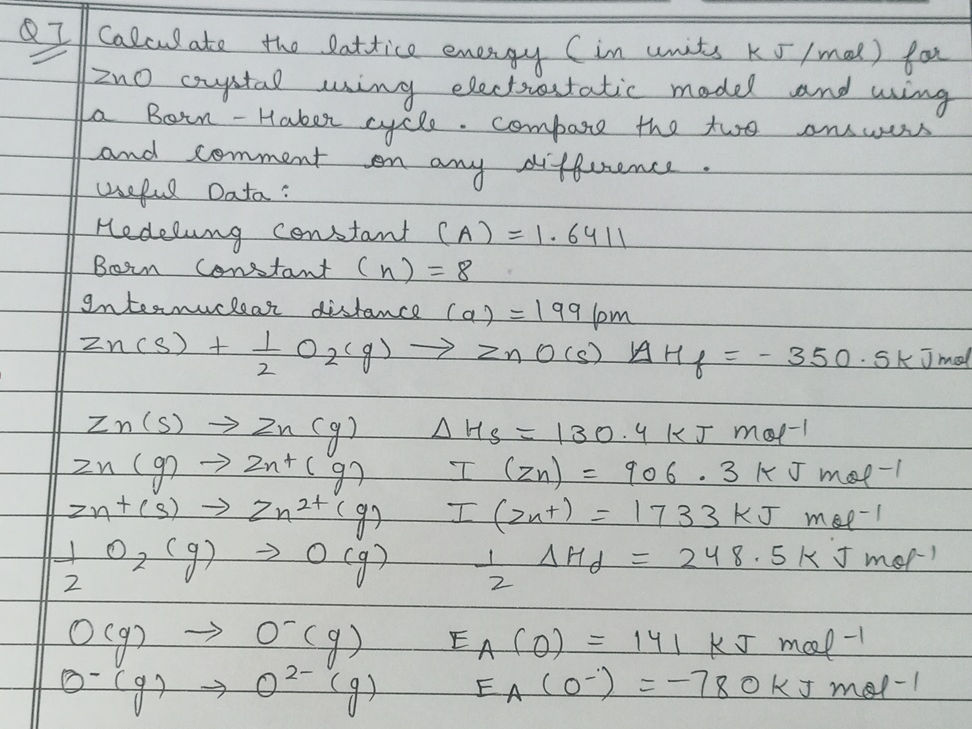 Q I Calculate the lattice energy (in units KJ/mol) for
ZnO crystal using electrostatic model and using
a Born - Haber cycle. Compare the two answers
and comment on any difference.
Useful Data:
Medelung Constant (A) = 1.6411
Born Constant (n) = 8
Internuclear distance (a) = 199 pm
Zn(s) + 1/2 O2(g) → ZnO(s) ΔHf = - 350.5KJmol
Zn(s) → Zn(g) ΔHs = 130.4 KJ mol-1
Zn(g) → Zn+(g) I (Zn) = 906.3 KJ mol-1
Zn+(s) → Zn2+(g) I (Zn+) = 1733 KJ mol-1
1/2 O2(g) → O(g) 1/2 ΔHd = 248.5 KJ mol-1
O(g) → O-(g) EA(O) = 141 KJ mol-1
O-(g) → O2-(g) EA(O-) = -780KJ mol-1